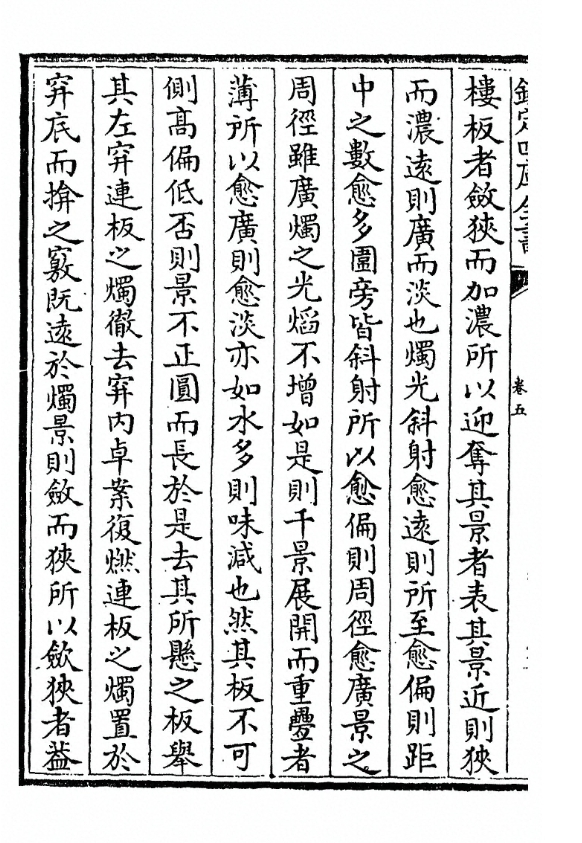 欽定四庫全書
卷五
樓板者斂狹而加濃所以迎奪其景者表其景近則狹
而濃遠則廣而淡也燭光斜射愈遠則所至愈偏則距
中之數愈多圍旁皆斜射所以愈偏則周徑愈廣景之
周徑雖廣燭之光熖不增如是則千景展開而重疊者
薄所以愈廣則愈淡亦如水多則味減也然其板不可
側高偏低否則景不正圓而長於是去其所懸之板舉
其左穽連板之燭徹去穽内卓案復燃連板之燭置於
穽底而揜之竅既遠於燭景則斂而狹所以歛狹者益